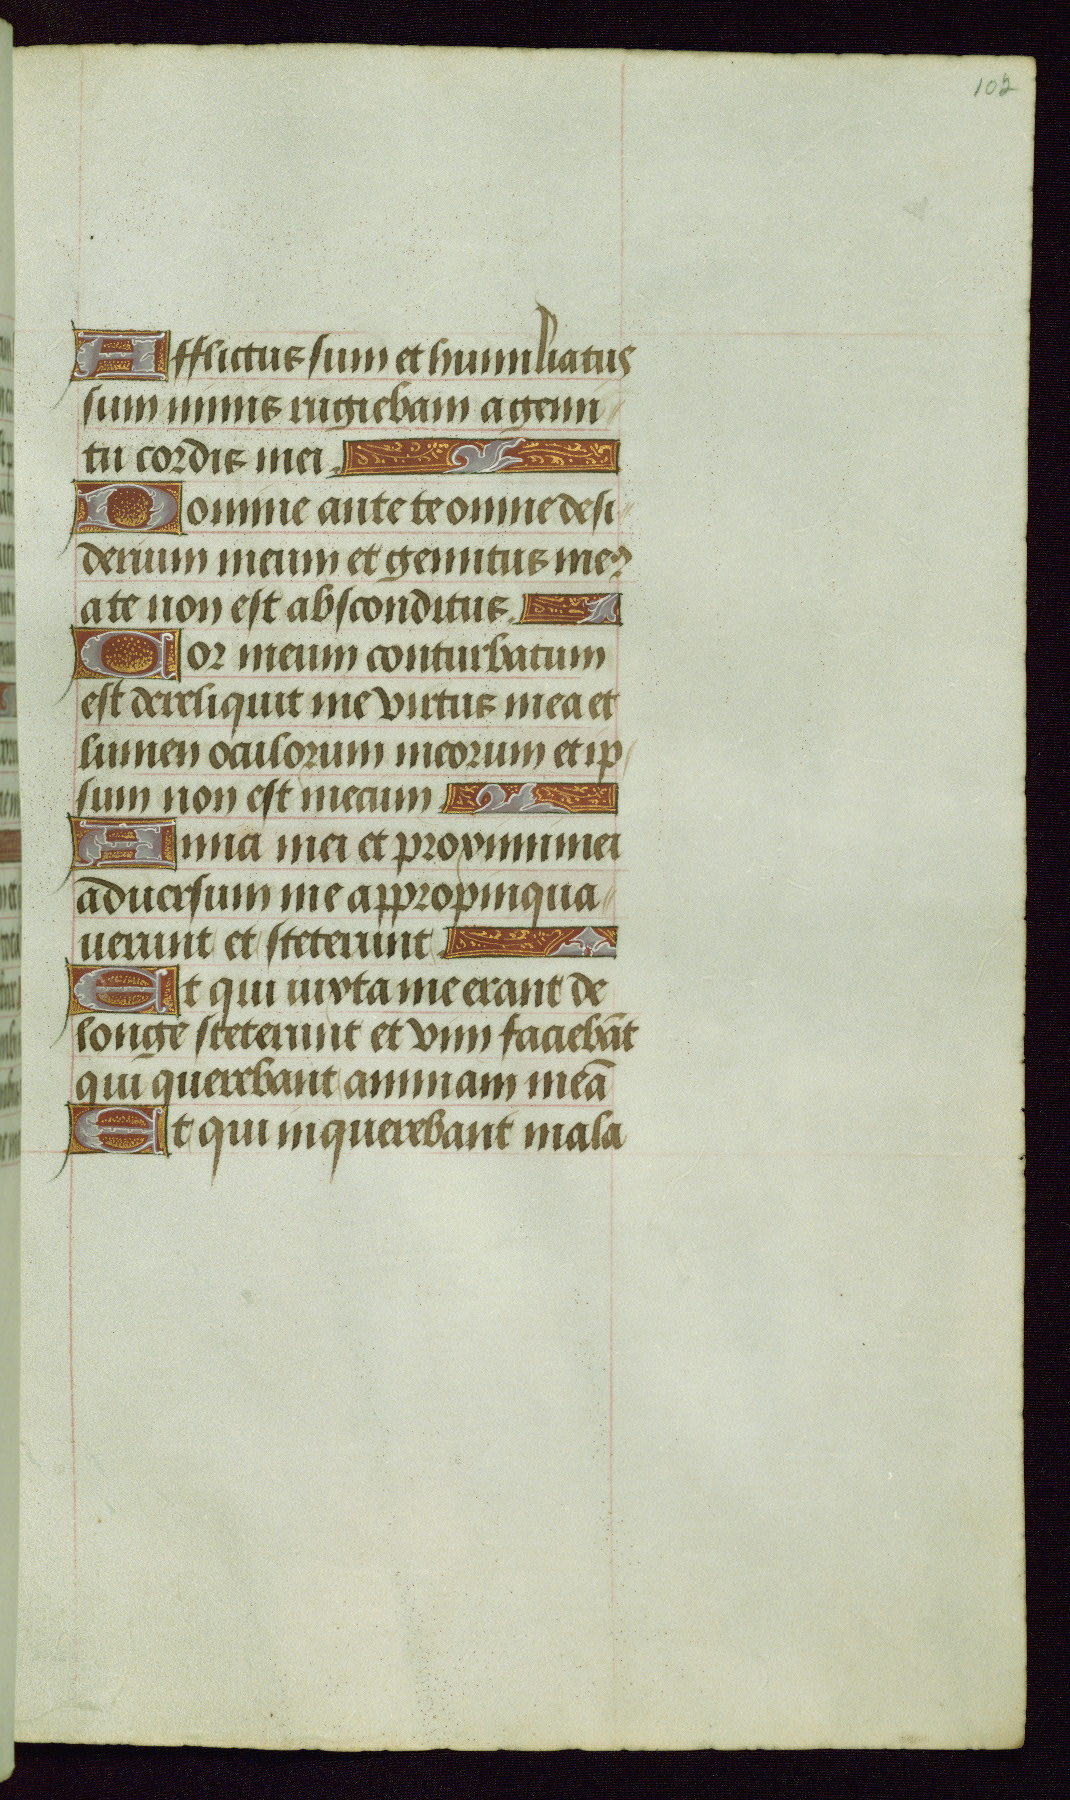 102
Afflictus sum et humiliatus
sum nimis rugiebam a gemi
tu cordis mei.
Domine ante te omne desi
derium meum et gemitus meꝰ
a te non est absconditus.
Cor meum conturbatum
est dereliquit me virtus mea et
lumen oculorum meorum et ip
sum non est mecum
Amici mei et proximi mei
aduersum me appropinqua
uerunt et steterunt.
Et qui iuxta me erant de
longe steterunt et vim faciebāt
qui querebant animam meā
Et qui inquerebant mala